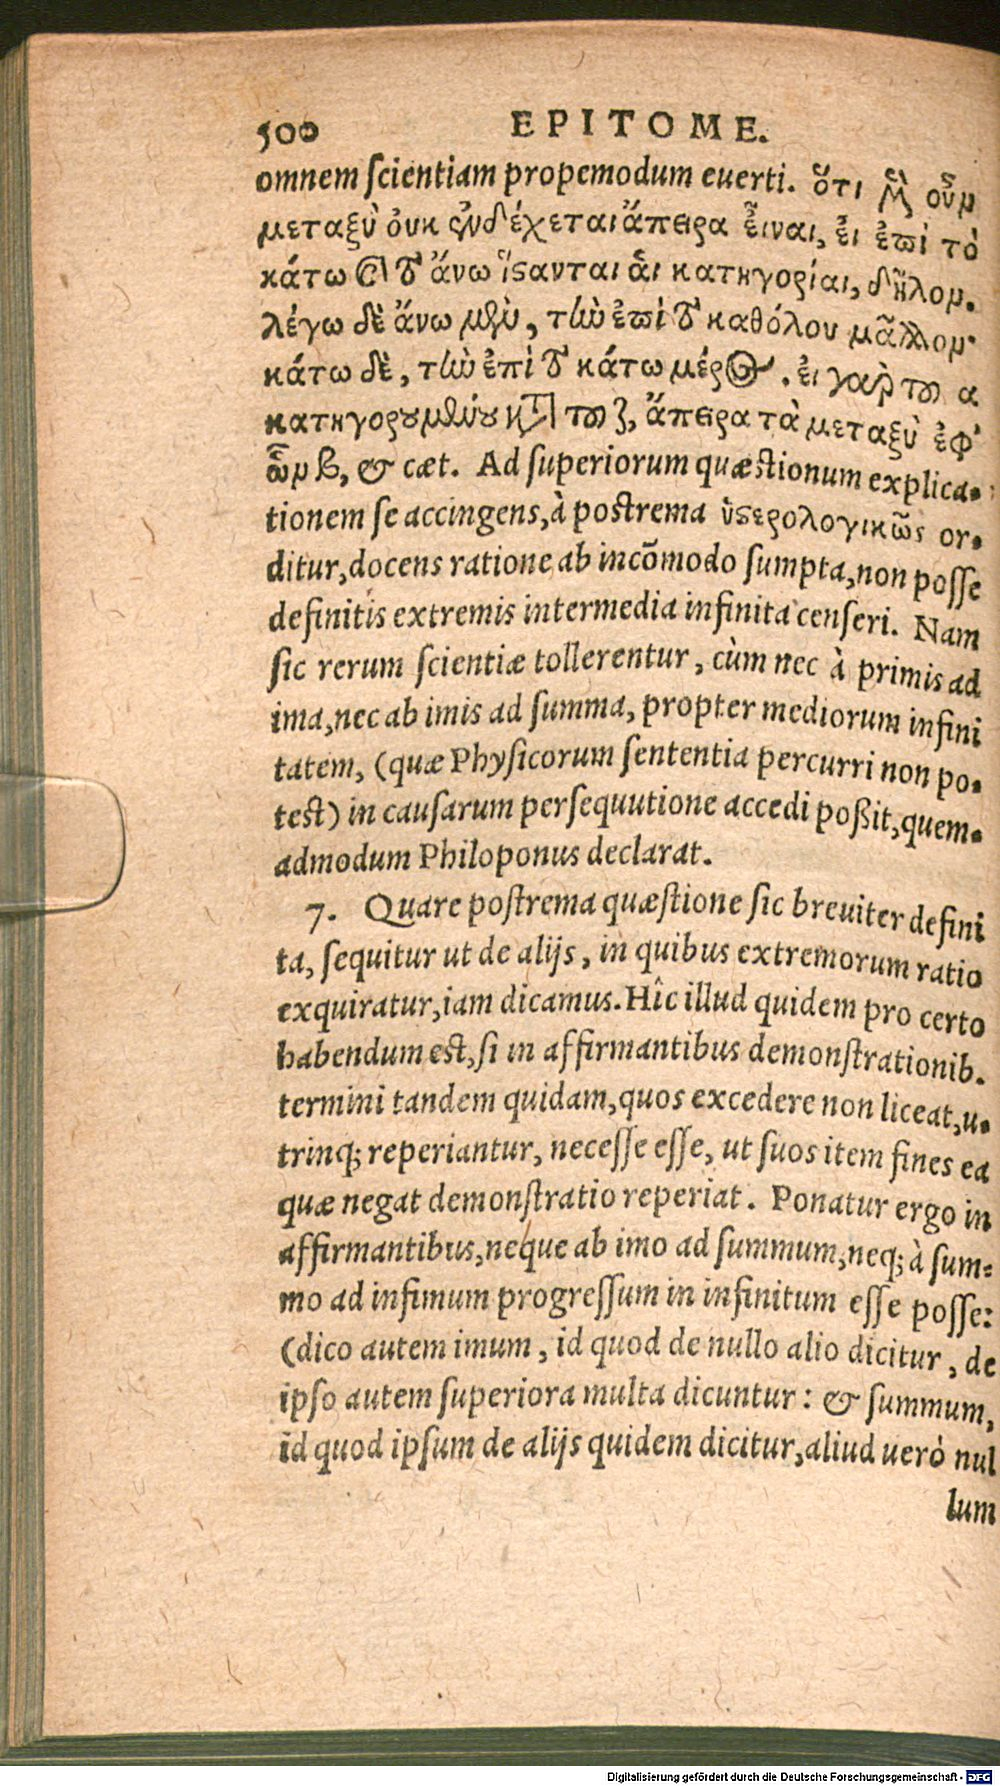 500 EPITOME.
omnem ſcientiam propemodum everti. ὅτι μὲν οὖν
μεταξὺ οὐκ ἐνδέχεται ἄπειρα εἶναι, εἰ ἐπὶ τὸ
κάτω καὶ τὸ ἄνω ἵστανται αἱ κατηγορίαι, δῆλον.
λέγω δὲ ἄνω μὲν, τὴν ἐπὶ τὸ καθόλου μᾶλλον·
κάτω δὲ, τὴν ἐπὶ τὸ κάτω μέρος. εἰ γὰρ τοῦ α
κατηγορουμένου κατὰ τοῦ ζ, ἄπειρα τὰ μεταξὺ ἐφ'
ὧν β, & cæt. Ad ſuperiorum quæſtionum explica-
tionem ſe accingens, à poſtrema ὑστερολογικῶς or-
ditur, docens ratione ab incõmodo ſumpta, non poſſe
definitis extremis intermedia infinita cenſeri. Nam
ſic rerum ſcientiæ tollerentur, cùm nec à primis ad
ima, nec ab imis ad ſumma, propter mediorum infini
tatem, (quæ Phyſicorum ſententia percurri non po-
teſt) in cauſarum perſequutione accedi poßit, quem-
admodum Philoponus declarat.
7. Quare poſtrema quæſtione ſic breviter defini
ta, ſequitur ut de alijs, in quibus extremorum ratio
exquiratur, iam dicamus. Hîc illud quidem pro certo
habendum eſt, ſi in affirmantibus demonſtrationib.
termini tandem quidam, quos excedere non liceat, u-
trinq; reperiantur, neceſſe eſſe, ut ſuos item fines ea
quæ negat demonſtratio reperiat. Ponatur ergo in
affirmantibus, neque ab imo ad ſummum, neq; à ſum-
mo ad infimum progreſſum in infinitum eſſe poſſe:
(dico autem imum, id quod de nullo alio dicitur, de
ipſo autem ſuperiora multa dicuntur: & ſummum,
id quod ipſum de alijs quidem dicitur, aliud uerò nul
lum
Digitalisierung gefördert durch die Deutsche Forschungsgemeinschaft - DFG